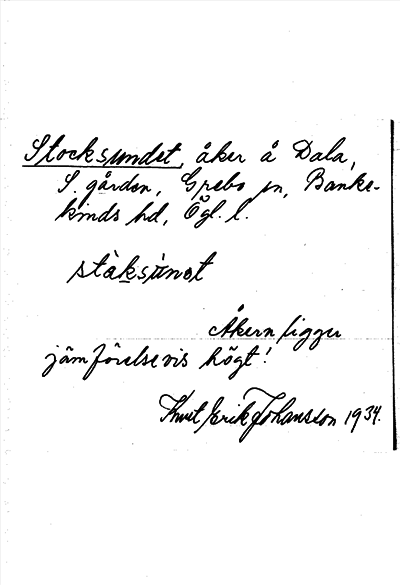 Stocksundet, åker å Dala,
S. gården, Grebo sn, Banke-
kinds hd, Ögl. l.
stàksúnət
Åkern ligger
jämförelsevis högt!
Knut Erik Johansson 1934.